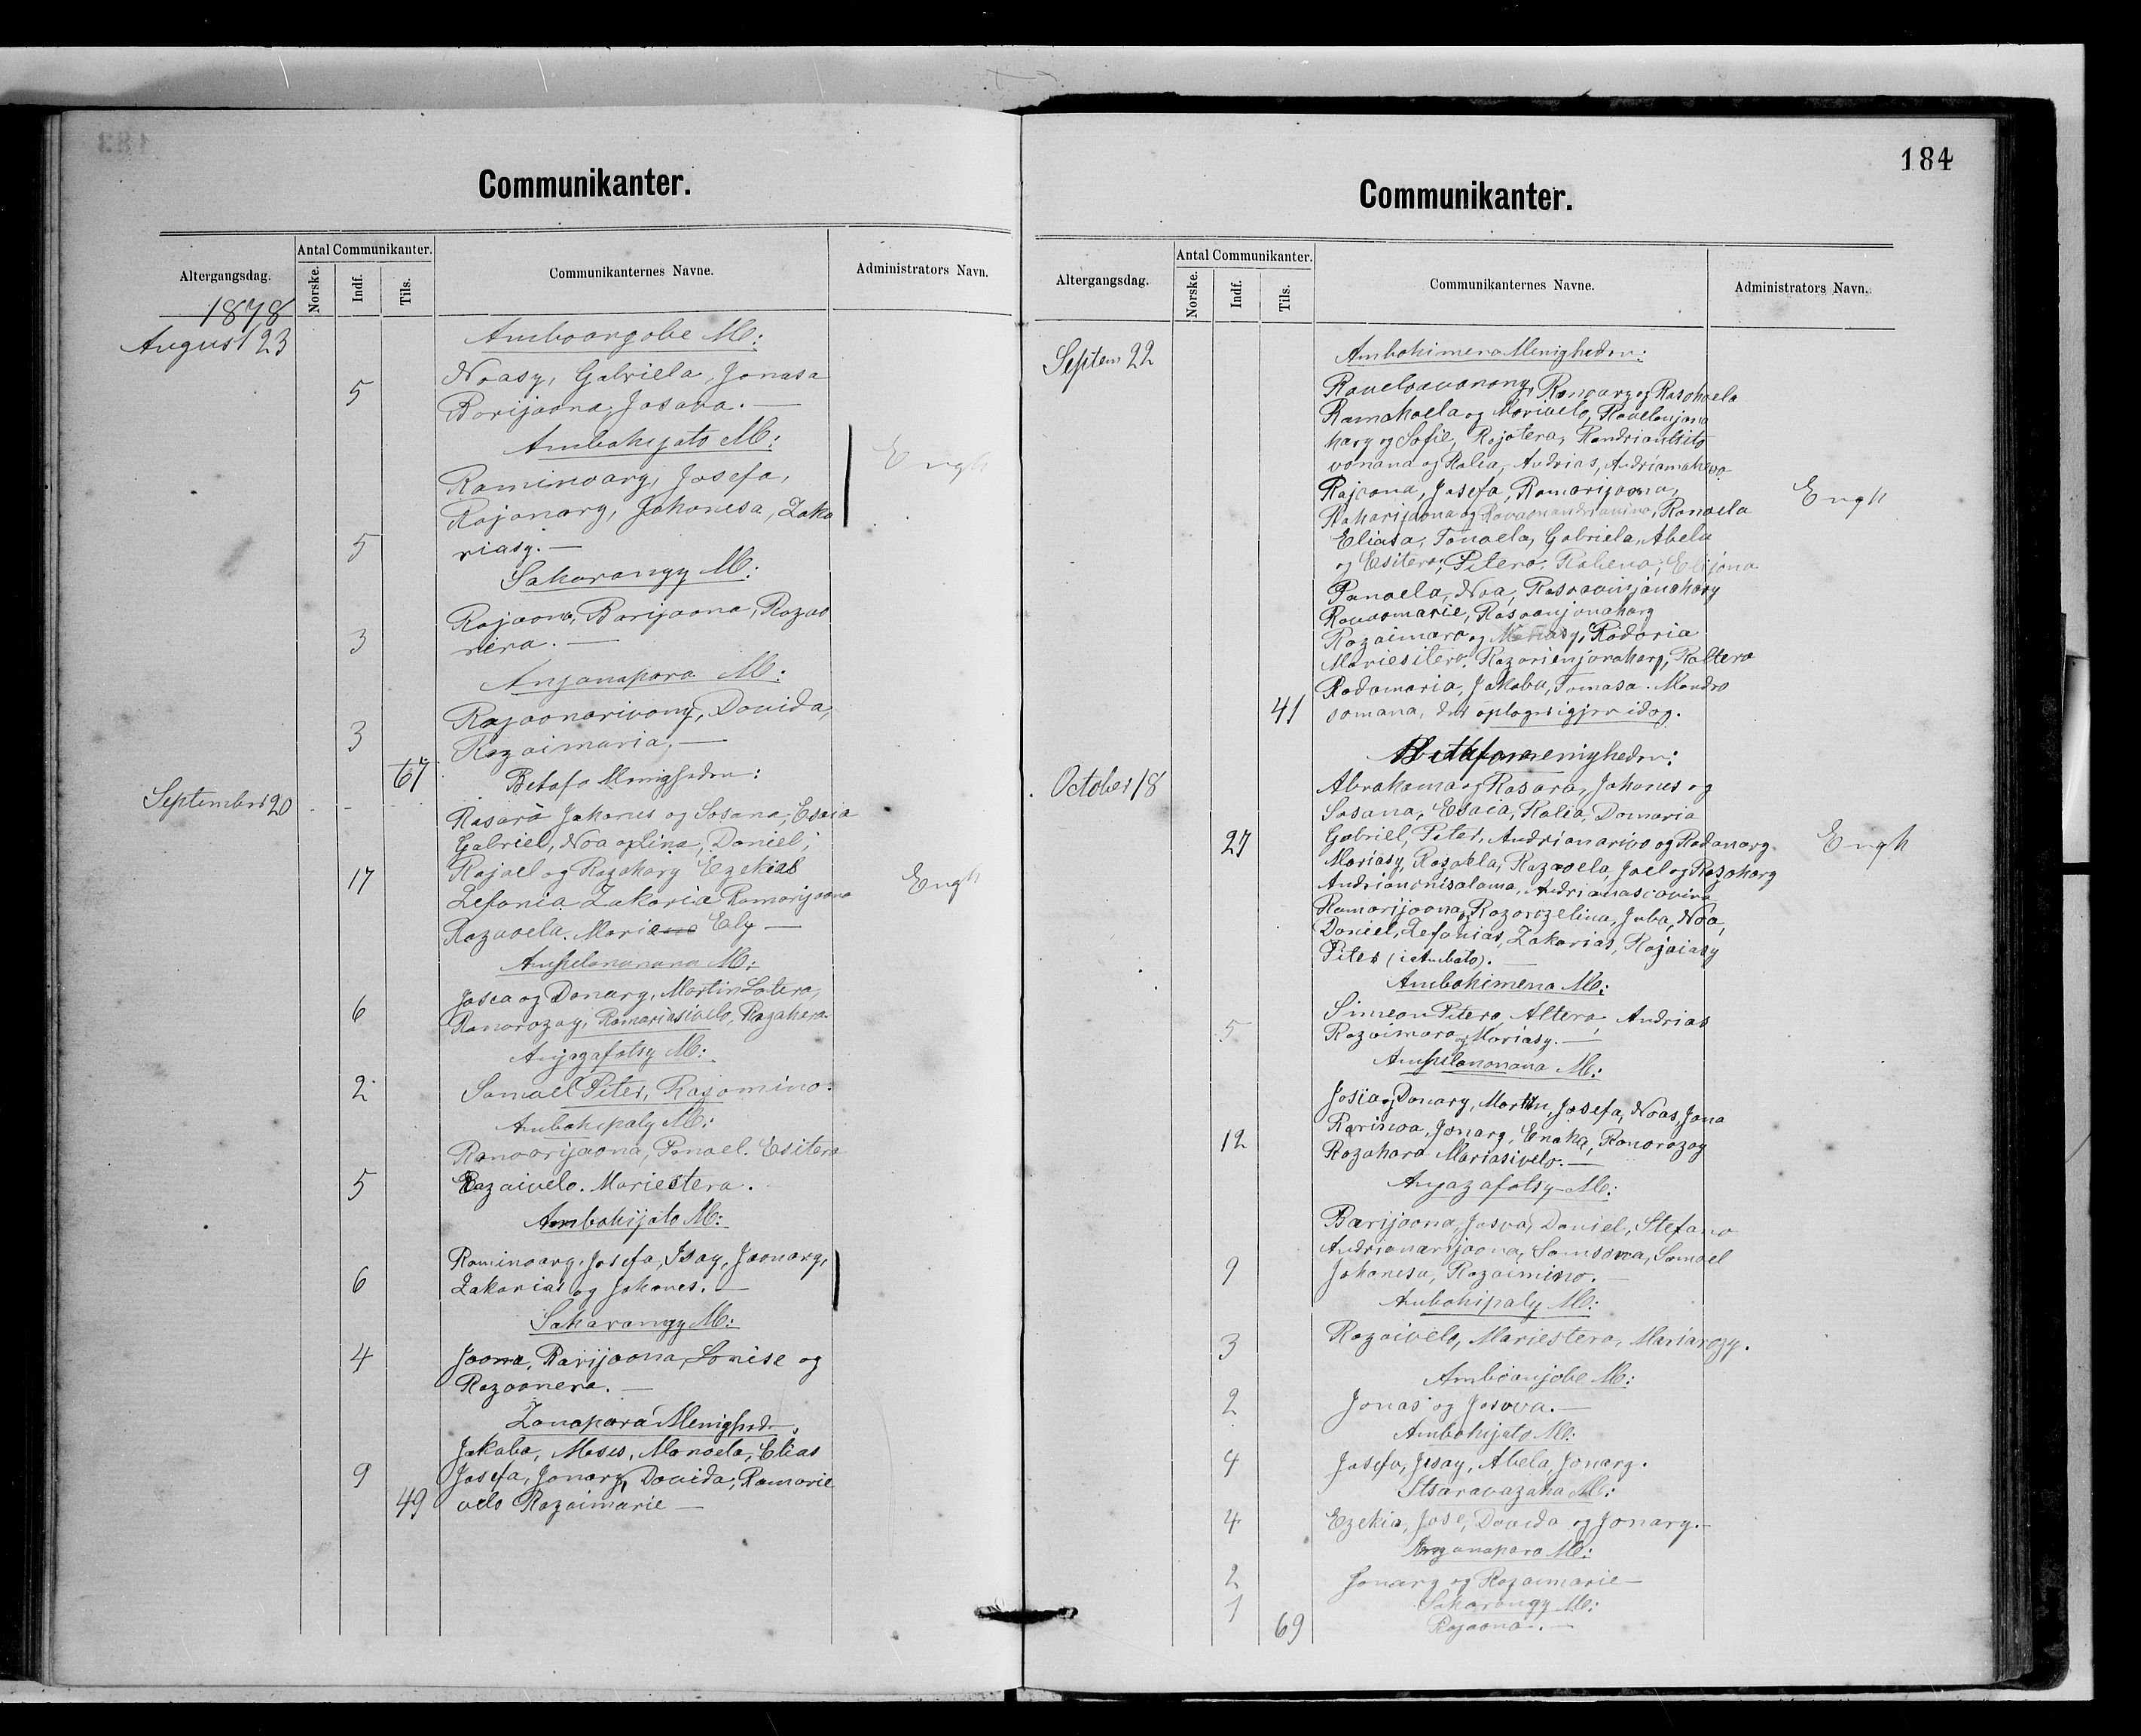 184
Communikanter.
Altergangsdag.
Antal Communikanter.
Norske.
Indf.
Tils.
Communikanternes Navne.
Administrators Navn.
1878
August 23
Amboangobe M:
Noasy, Gabriela, Jonasa
5
Borijaona, Josava. —
Ambohijato M:
Engh
Raminoarg, Josefa,
Rajonarg, Johanesa, Zaka
5
riasy. —
Saharangy M:
Rajaona, Barijaona, Razao
3
nera. —
Anjanapara M:
Rajaonarivony, Davida,
3
Razaimaria. —
67
Betafo Menigheden:
September 20
Rasara Johanes og Sosana, Esaia
Gabriel, Noa og Lina, Daniel,
17
Rajoel og Razahary Ezekias
Engh
Zefania Zakaria Ramarijaona
Razavela. Maria Ely —
Ampilanonana M:
Josea og Donarg, Martin Lotera,
6
Ranorozay, Ramariasivelo, Razahara
Anjazafotsy M:
2
Samael Peter, Razamino.
Ambohipaly M:
Ranoorijaona, Panael. Esitera
5
Razaivelo. Mariestera.
Ambohijato M:
Raminoarg, Josefa, Isay, Joonarg,
6
Zakarias og Johanes. —
Saharangy M:
4
Joona, Rarijaona, Louise og
Razaonera. —
Zanapara Menighed
Jakoba, Moses, Manoela, Elias
9
Josefa, Jonarg, Davida, Ramarie
49
velo Razaimarie —
Communikanter.
Altergangsdag.
Antal Communikanter.
Norske.
Indf.
Tils.
Communikanternes Navne.
Administrators Navn.
Septem 22
Ambohimena Menigheden:
Raveloavanony, Ranoarg og Rasohaela
Ramahaela og Marivelo, Ravelonjana
harg og Sofie, Rajotera, Randriantsito
vonana og Ralia, Andrias, Andriamahevo
Rajaona, Josefa, Ramarijaona,
Engh
Raharijaona og Ravaonandrianina, Ranaela
Eliasa, Tanaela, Gabriela, Abela
og Esitera, Petera, Rabena, Elijona
Panaela, Noa, Rasoavinjanahary
Ravaomarie, Rasoanjanaharg
Razaimara og Mariasy, Rodaria
Mariesitera. Razarienjanaharg, Raltera
Radamaria, Jakoba, Tomasa. Mandro
41
somana, det oplagdes igjen idag.
Betafomenigheden:
October 18
Abrahama og Rasara, Johanes og
Sosana, Esaia, Ralia, Damaria
27
Gabriel, Peter, Andrianarivo og Radanarg
Engh
Mariasy, Razaela, Razavela, Joel og Razaharg
Andrianonisalama, Andrianasoavina
Ramarijaona og Razarozelina, Joba, Noa,
Daniel, Zefanias, Zakarias, Rajoiasy
Peter (i Ambato). —
Ambohimena M:
Simeon Petera, Altera, Andrias
5
Razaimara og Mariasy. —
Ampilanonana M:
Josia og Donarg, Martin, Josefa, Noas, Jona
12
Rarinoa, Jonarg, Enoka, Ranorozay
Razahara Mariasivelo. —
Anjazafotsy M:
Barijaona, Josva, Daniel, Stefano
Andrianarijaona, Samsona, Samael
9
Johanesa, Razaimino. —
Ambohipaly M:
3
Razaivelo, Mariestera, Mariarozy.
Amboanjobe M:
2
Jonas og Josova. —
Ambohijato M:
4
Josefa, Jesay, Abela, Jonarg.
Itsaravazaha M:
4
Ezekia, Jose, Davida og Jonarg. —
Anjanapara M:
2
Jonarg og Razaimarie —
Saharangy M:
1
69
Rajaona. —